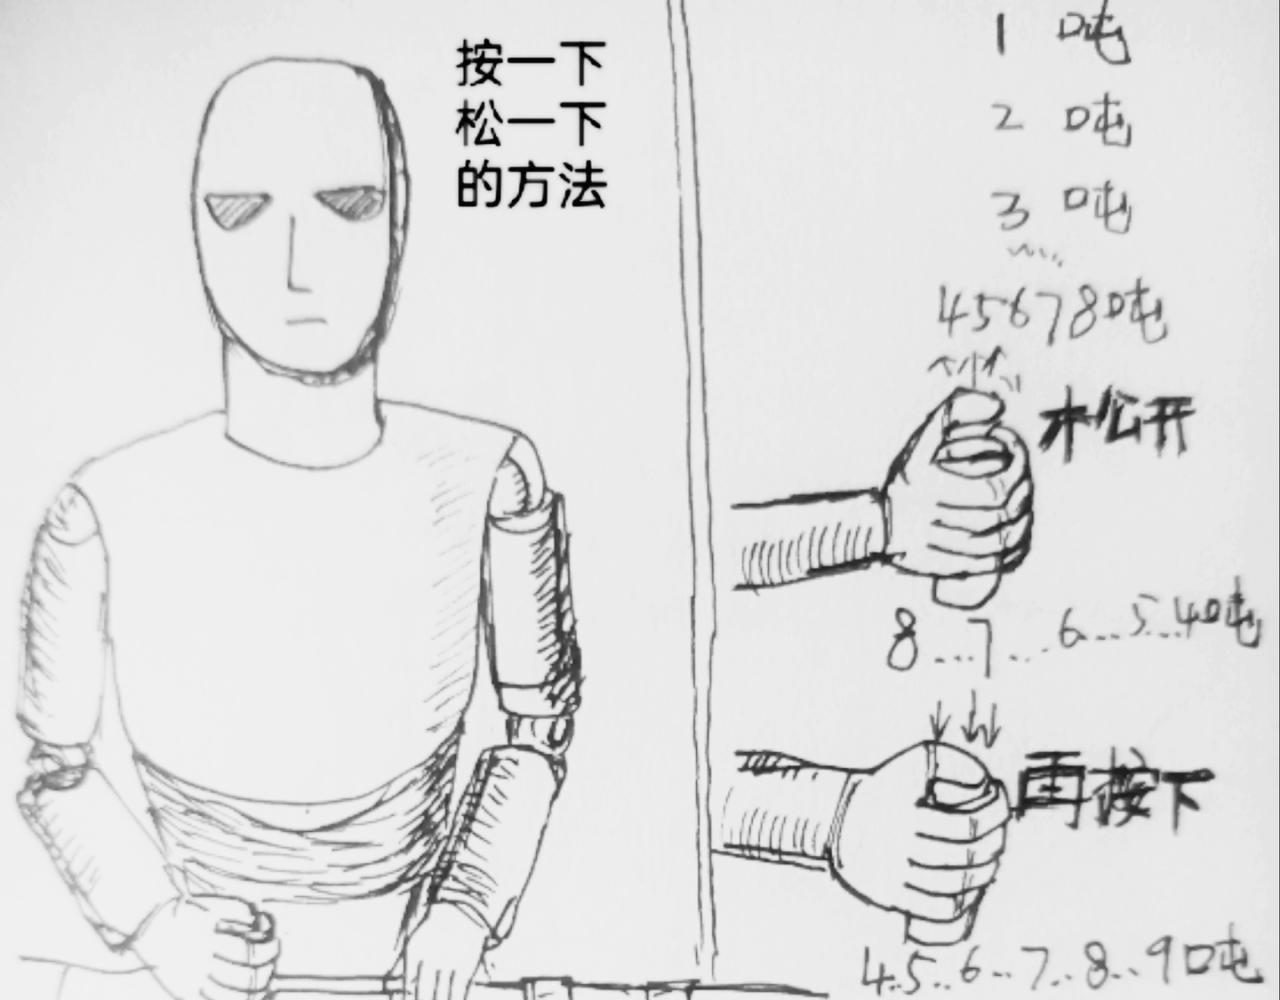 按一下
松一下
的方法
1 吨
2 吨
3 吨
45678吨
松开
8...7...6...5...4吨
再按下
4.5..6..7..8..9吨